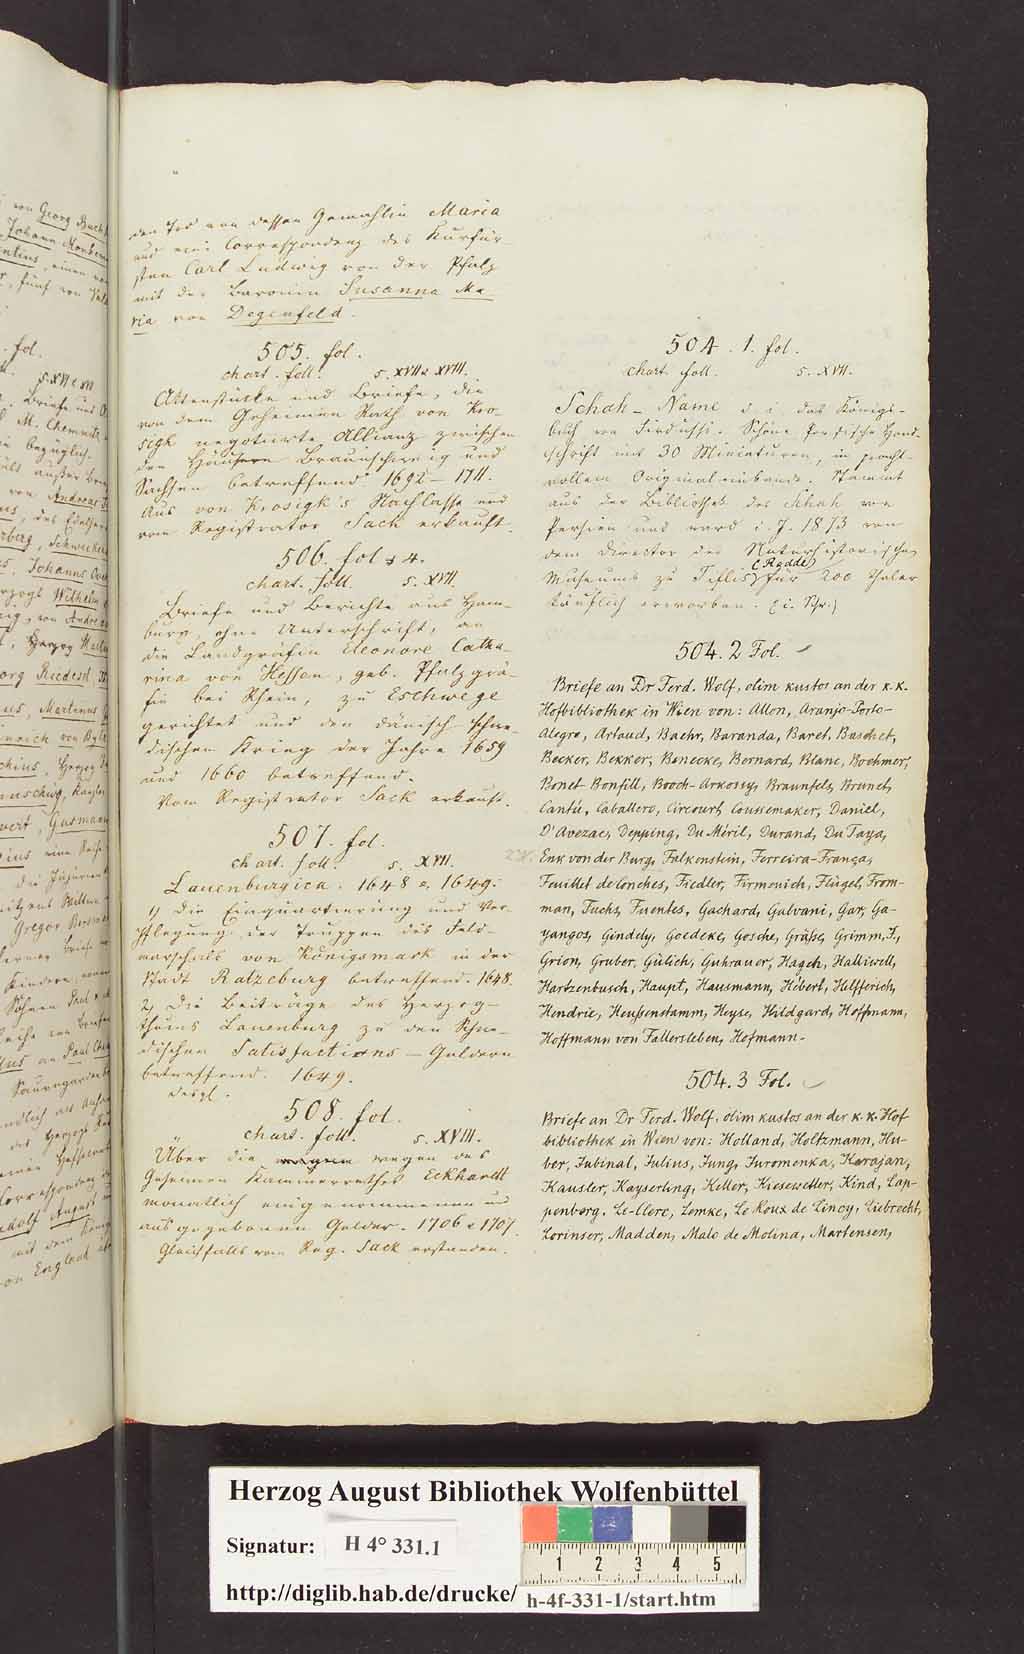 den Tod von dessen Gemahlin Maria
und eine Correspondenz des Kurfür-
sten Carl Ludwig von der Pfalz
mit der Baronin Susanna Ma
ria von Degenfeld.
505. fol.
chart. foll. s. XVII & XVIII.
Aktenstücke und Briefe, die
von dem Geheimen Rath von Kro-
sigk negotiirte Allianz zwischen
den Häusern Braunschweig und
Sachsen betreffend 1692 - 1711.
Aus von Krosigk's Nachlasse und
vom Registrator Sack erkauft.
506. fol & 4.
chart. foll. s. XVII.
Briefe und Berichte aus Ham-
burg, ohne Unterschrift, an
die Landgräfin Eleonore Catha-
rina von Hessen, geb. Pfalzgrä-
fin bei Rhein, zu Eschwege
gerichtet und den dänisch-schwe-
dischen Krieg der Jahre 1659
und 1660 betreffend.
Vom Registrator Sack erkauft.
507. fol.
chart. foll. s. XVII.
Lauenburgica. 1648 & 1649.
1) die Einquartierung und Ver-
pflegung der Truppen des Feld-
marschals von Königsmark in der
Stadt Ratzeburg betreffend. 1648.
2, die Beiträge des Herzog-
thums Lauenburg zu den Schwe-
dischen Satisfactions-Geldern
betreffend. 1649.
desgl.
508. fol.
chart. foll. s. XVIII.
Über die wegen des
Geheimen Kammerrathes Eckhardt
monatlich eingenommenen und
ausgegebenen Gelder. 1706 & 1707.
Gleichfalls vom Reg. Sack erstanden.
504. 1. fol.
chart. foll. s. XVII.
Schah-Name d. i. das Königs-
buch von Firdussi. Schöne Persische Hand-
schrift mit 30 Miniaturen, in pracht-
vollem Originaleinbande. Stammt
aus der Bibliothek des Schah von
Persien und ward i. J. 1873 von
dem Director des Naturhistorischen
(Radde)
Museums zu Tiflis für 200 Thaler
käuflich erworben.
504. 2 Fol.
Briefe an Dr Ferd. Wolf, olim kustos an der k. k.
Hofbibliothek in Wien von: Allon, Aranjo-Porto-
Alegro, Artaud, Baehr, Baranda, Baret, Baschet,
Becker, Bekker, Benecke, Bernard, Blanc, Boehmer,
Bonet Bonfill, Booch-Arkossy, Braunfels, Brunet,
Cantù, Caballero, Circourt, Coussemaker, Daniel,
D'Avezac, Depping, Du Méril, Durand, Du Taya,
Enk von der Burg, Falkenstein, Ferreira-França,
Feuillet de Conches, Fiedler, Firmenich, Flügel, From-
man, Fuchs, Fuentes, Gachard, Galvani, Gar, Ga-
yangos, Gindely, Goedeke, Gosche, Gräße, Grimm, J.,
Grion, Gruber, Gülich, Guhrauer, Hagen, Halliwell,
Hartzenbusch, Haupt, Hausmann, Hébert, Helfferich,
Hendric, Heußenstamm, Heyse, Hildgard, Hoffmann,
Hoffmann von Fallersleben, Hofmann.
504. 3 Fol.
Briefe an Dr Ferd. Wolf, olim kustos an der k. k. Hof
bibliothek in Wien von: Holland, Holtzmann, Hu-
ber, Jubinal, Julius, Jung, Juromenka, Karajan,
Kausler, Kayserling, Keller, Kiesewetter, Kind, Lap-
penberg, Le-Clerc, Lemke, Le Roux de Lincy, Liebrecht,
Lorinser, Madden, Malo de Molina, Martensen,
Herzog August Bibliothek Wolfenbüttel
Signatur: H 4° 331.1
1 2 3 4 5
http://diglib.hab.de/drucke/ h-4f-331-1/start.htm